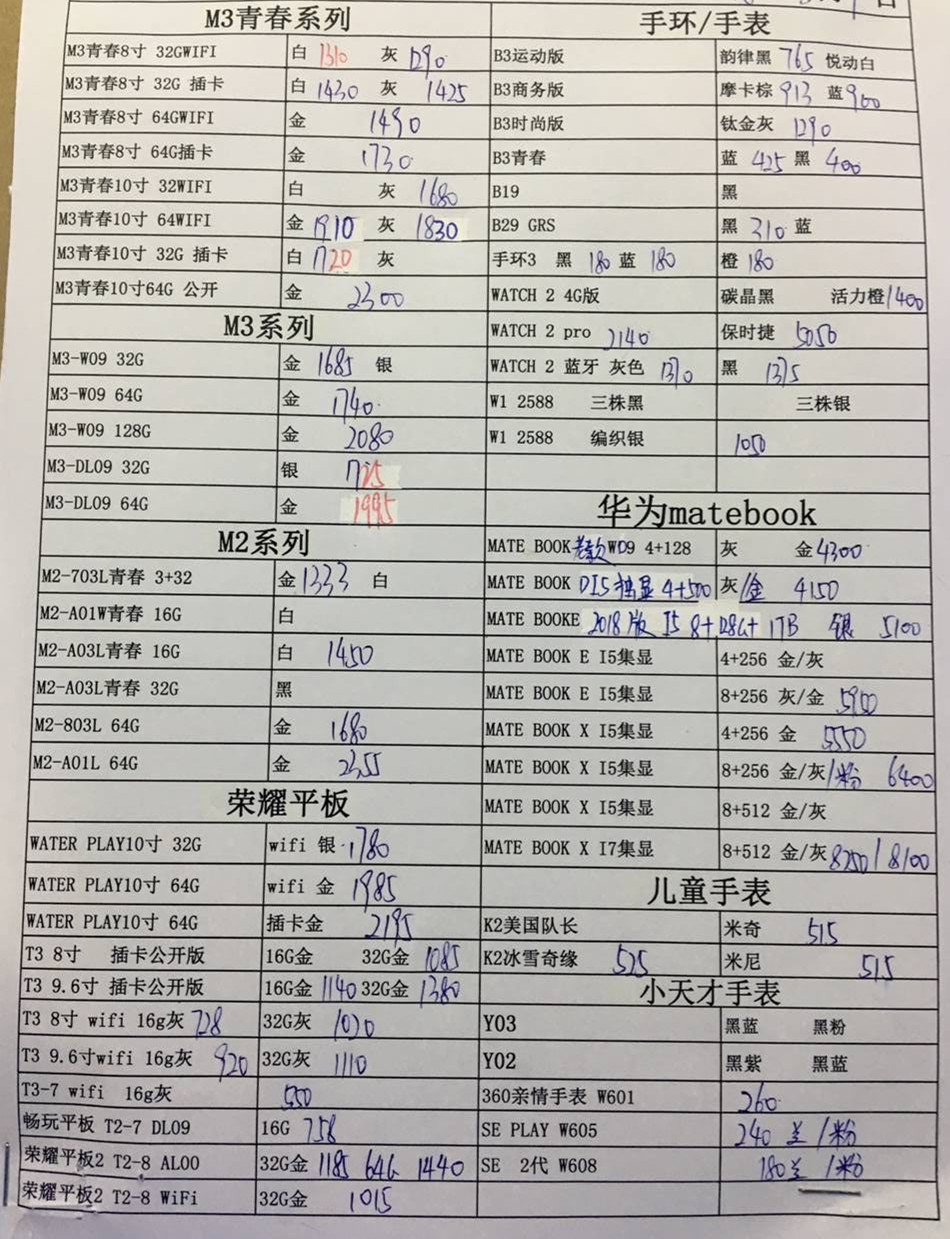 M3青春系列
M3青春8寸 32GWIFI 白 1310 灰 1290
M3青春8寸 32G 插卡 白 1430 灰 1425
M3青春8寸 64GWIFI 金 1490
M3青春8寸 64G插卡 金 1730
M3青春10寸 32WIFI 白 灰 1680
M3青春10寸 64WIFI 金 1910 灰 1830
M3青春10寸 32G 插卡 白 1720 灰
M3青春10寸64G 公开 金 2300
M3系列
M3-W09 32G 金 1685 银
M3-W09 64G 金 1740
M3-W09 128G 金 2080
M3-DL09 32G 银 1725
M3-DL09 64G 金 1995
M2系列
M2-703L青春 3+32 金 1333 白
M2-A01W青春 16G 白
M2-A03L青春 16G 白 1450
M2-A03L青春 32G 黑
M2-803L 64G 金 1680
M2-A01L 64G 金 2355
荣耀平板
WATER PLAY10寸 32G wifi 银 1780
WATER PLAY10寸 64G wifi 金 1985
WATER PLAY10寸 64G 插卡金 2195
T3 8寸 插卡公开版 16G金 32G金 1085
T3 9.6寸 插卡公开版 16G金 1140 32G金 1380
T3 8寸 wifi 16g灰 728 32G灰 1020
T3 9.6寸wifi 16g灰 920 32G灰 1110
T3-7 wifi 16g灰 550
畅玩平板 T2-7 DL09 16G 758
荣耀平板2 T2-8 AL00 32G金 1185 64G 1440
荣耀平板2 T2-8 WiFi 32G金 1015
手环/手表
B3运动版 韵律黑 765 悦动白
B3商务版 摩卡棕 913 蓝 900
B3时尚版 钛金灰 1290
B3青春 蓝 425 黑 400
B19 黑
B29 GRS 黑 310 蓝
手环3 黑 180 蓝 180 橙 180
WATCH 2 4G版 碳晶黑 活力橙 1400
WATCH 2 pro 2140 保时捷 5050
WATCH 2 蓝牙 灰色 1370 黑 1375
W1 2588 三株黑 三株银
W1 2588 编织银 1050
华为matebook
MATE BOOK 老款 W09 4+128 灰 金 4300
MATE BOOK D I5 独显 4+500 灰/金 4150
MATE BOOKE 2018版 I5 8+128G+1TB 银 5100
MATE BOOK E I5集显 4+256 金/灰
MATE BOOK E I5集显 8+256 灰/金 5900
MATE BOOK X I5集显 4+256 金 5550
MATE BOOK X I5集显 8+256 金/灰/粉 6400
MATE BOOK X I5集显 8+512 金/灰
MATE BOOK X I7集显 8+512 金/灰 8250/8100
儿童手表
K2美国队长 米奇 515
K2冰雪奇缘 525 米尼 515
小天才手表
Y03 黑蓝 黑粉
Y02 黑紫 黑蓝
360亲情手表 W601 260
SE PLAY W605 240 兰/粉
SE 2代 W608 180兰/粉